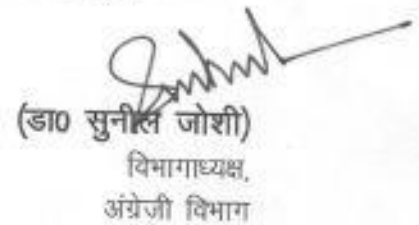 (डा0 सुनील जोशी)
विभागाध्यक्ष,
अंग्रेजी विभाग